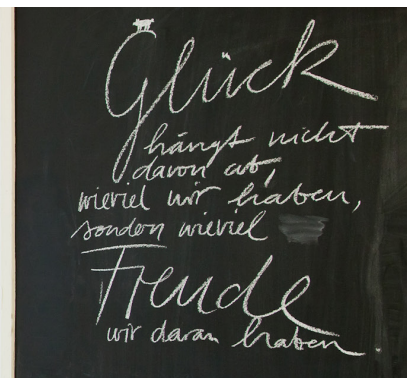 Glück
hängt nicht
davon ab,
wieviel wir haben,
sondern wieviel
Freude
wir daran haben